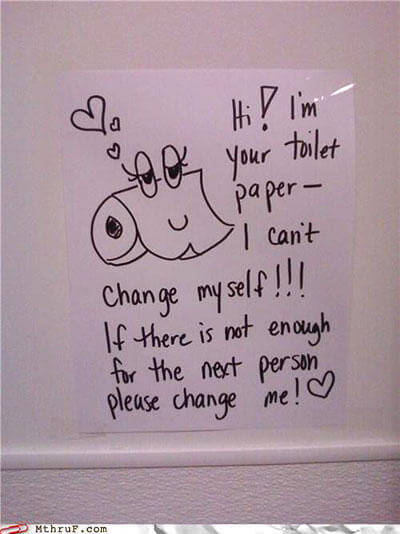 Hi! I'm
your toilet
paper —
I can't
change myself!!!
If there is not enough
for the next person
please change me! ♡
MthruF.com